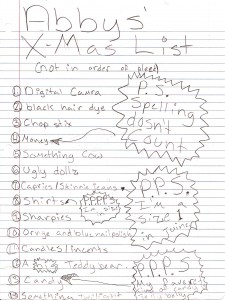 Abbys'
X-Mas List
(not in order of
① Digital Camra
② black hair dye
③ Chop stix
④ Money
⑤ Something Cow
⑥ Ugly dolls
⑦ Capries/Skinnie jeans
⑧ Shirts
⑨ Sharpies
⑩ Orunge and blue nail polish
⑪ Candles/incents
⑫ A big Teddy bear
⑬ Candy
⑭ Something Twilight
P.S.
Spelling
dosnt
Count
PPPPS
P.P.S.
I'm a
size 1
in Juniors
P.P.P.S